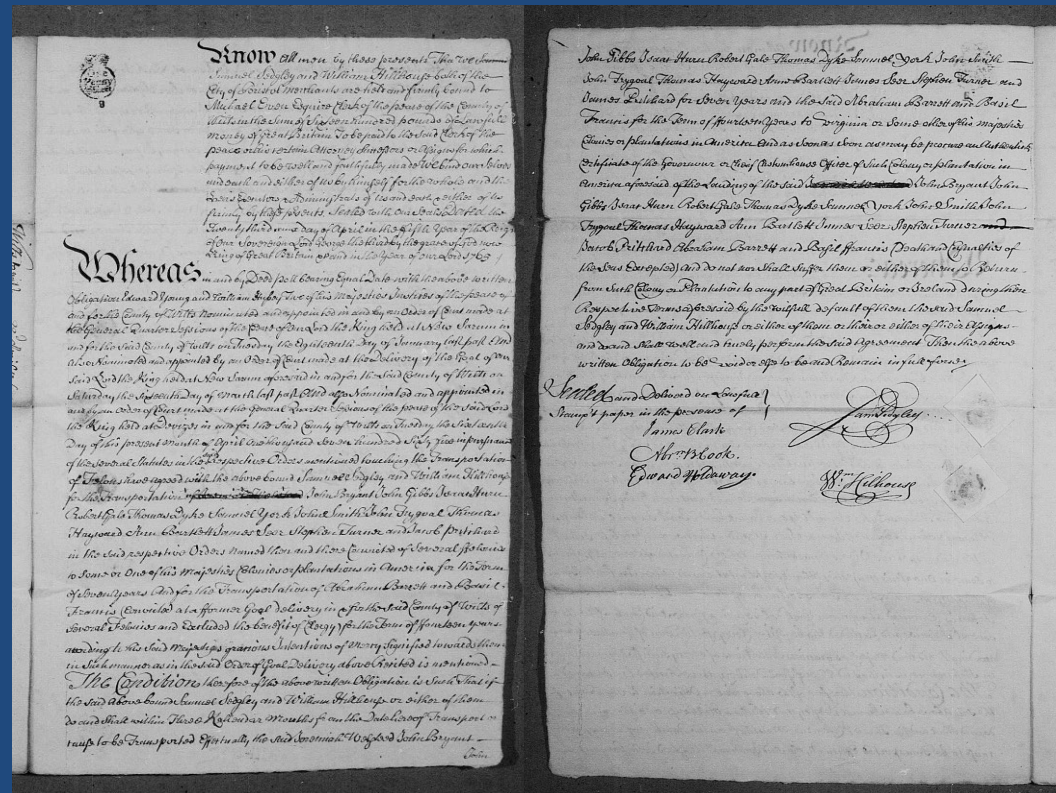 Know All men by these presents That We Samuel
Samuel Sedgley and William Hillhouse both of the
City of Bristol Merchants are held and firmly bound to
Michael Ewen Esquire Clerk of the peace of the County of
Wilts in the Sum of Sixteen hundred pounds of Lawfull
money of Great Britain To be paid to the said Clerk of the
peace or his certain Attorney Successors or Assigns for which
payment to be well and faithfully made We bind our Selves
and each and either of us by himself for the whole and the
Heirs Executors & Administrators of us and each & either of us
firmly by these presents Sealed with our Seals Dated the
Twenty third day of April in the fifth Year of the Reign
of our Sovereign Lord George the third by the grace of God now
King of Great Britain &c and in the Year of our Lord 1765
Whereas in and by Deed poll bearing Equal Date with the above written
Obligation Edward Young and William Esquires Two of his Majesties Justices of the peace of
and for the County of Wilts Nominated and appointed in and by an Order of Court made at
the General Quarter Sessions of the Peace of our Lord the King held at New Sarum in
and for the said County of Wilts on Tuesday the Eighteenth Day of January last past And
also Nominated and appointed by an Order of Court made at the Delivery of the Goal of our
said Lord the King held at New Sarum aforesaid in and for the said County of Wilts on
Saturday the Sixteenth Day of March last past And also Nominated and appointed in
and by an Order of Court made at the General Quarter Sessions of the peace of the said Lord
the King held at Devizes in and for the said County of Wilts on Tuesday the Sixteenth
Day of this present Month of April One thousand Seven hundred Sixty five in pursuance
of the Several Statutes in the respective Orders mentioned touching the Transportation
of Felons have agreed with the above bound Samuel Sedgley and William Hillhouse
for the Transportation John Bryant John Gibbs Isaac Hurn
Robert Gale Thomas Dyke Samuel York John Smith John Frygoal Thomas
Hayward Ann Bartlett James Seer Stephen Turner and Jacob Pritchard
in the said respective Orders named then and there Convicted of Several ffelonies
to some or One of his Majesties Colonies or plantations in America for the Term
of Seven Years And for the Transportation of Abraham Barrett and Basil
Francis Convicted at a fformer Goal delivery in & for the said County of Wilts of
Several Felonies and Excluded the benefit of Clergy for the Term of ffourteen years
according to his said Majestys gracious Intentions of Mercy Signified towards them
in Such manner as in the said Order of Goal Delivery above Recited is mentioned
The Condition therefore of the above written Obligation is Such That if
the said above bound Samuel Sedgley and William Hillhouse or either of them
do and Shall within Three Kalendar Months from the Date hereof Transport or
cause to be Transported Effectually the said Jeremiah John Bryant
John
John Gibbs Isaac Hurn Robert Gale Thomas Dyke Samuel York John Smith
John Frygoal Thomas Hayward Ann Bartlett James Seer Stephen Turner and
James Pritchard for Seven Years and the said Abraham Barrett and Basil
Francis for the Term of ffourteen Years to Virginia or Some other of his majesties
Colonies or plantations in America And as soon as may be procure an Authentick
Certificate of the Governour or Chief Customhouse Officer of Such Colony or plantation in
America aforesaid of the Landing of the said John Bryant John
Gibbs Isaac Hurn Robert Gale Thomas Dyke Samuel York John Smith John
Frygoal Thomas Hayward Ann Bartlett James Seer Stephen Turner and
Jacob Pritchard Abraham Barrett and Basil ffrancis (Death and Casualties of
the Seas Excepted) and do not nor Shall Suffer them or either of them to Return
from Such Colony or Plantation to any part of Great Britain or Ireland during their
Respective Terms afores'd by the wilfull default of them the said Samuel
Sedgley and William Hillhouse or either of them or their or either of their Assigns
and do and Shall well and truely perform the said Agreement Then the above
written Obligation to be void or else to be and Remain in full force
Sealed and Delivered on Lawfull
Stampt paper in the presence of
James Clark
Abrm Cook.
Edward Holdaway.
Sam Sedgley
Wm. Hilhouse